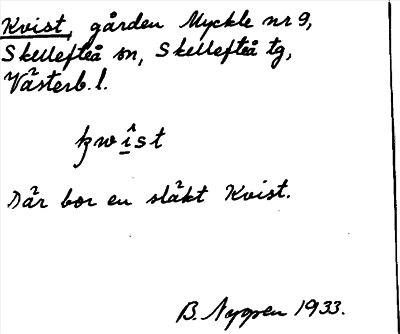 Kvist, gården Myckle nr 9,
Skellefteå sn, Skellefteå tg,
Västerb. l.
kwist
Där bor en släkt Kvist.
B. Nyppen 1933.